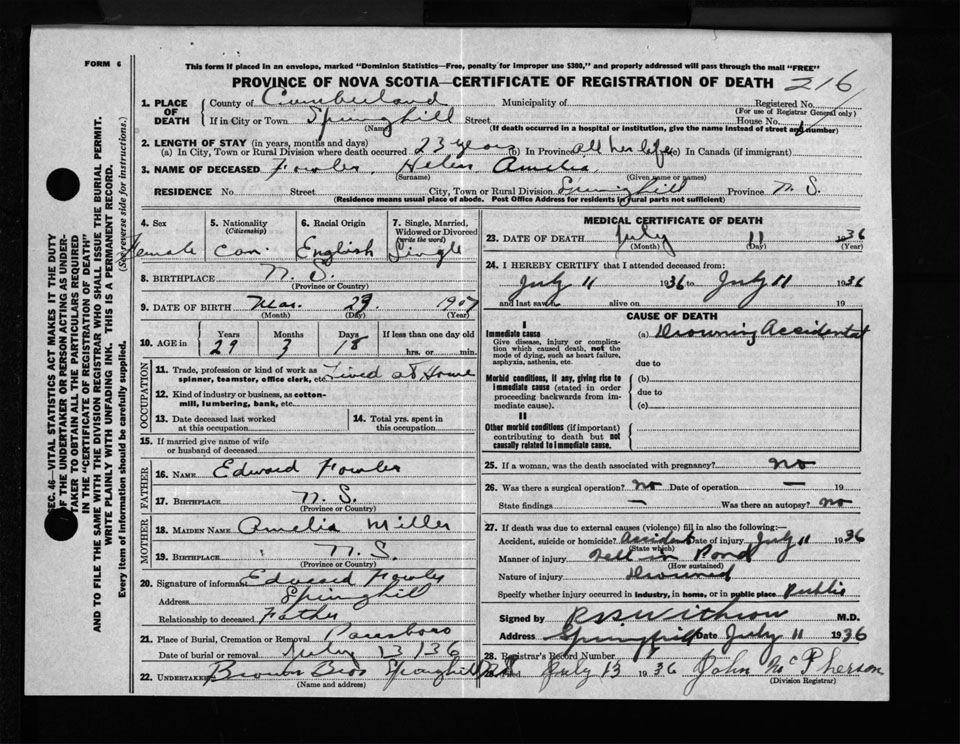 FORM 6
This form if placed in an envelope, marked "Dominion Statistics—Free, penalty for improper use $300," and properly addressed will pass through the mail "FREE"
PROVINCE OF NOVA SCOTIA—CERTIFICATE OF REGISTRATION OF DEATH 216
1. PLACE OF DEATH County of Cumberland Municipality of Registered No.
(For use of Registrar General only)
If in City or Town Springhill Street House No.
(Name) (If death occurred in a hospital or institution, give the name instead of street and number)
2. LENGTH OF STAY (in years, months and days)
(a) In City, Town or Rural Division where death occurred 23 years (b) In Province all her life (c) In Canada (if immigrant)
3. NAME OF DECEASED Fowler, Helen Amelia
(Surname) (Given name or names)
RESIDENCE No Street City, Town or Rural Division Springhill Province N.S.
(Residence means usual place of abode. Post Office Address for residents in rural parts not sufficient)
4. Sex Female
5. Nationality (Citizenship) Can
6. Racial Origin English
7. Single, Married, Widowed or Divorced (write the word) Single
8. BIRTHPLACE N. S.
(Province or Country)
9. DATE OF BIRTH Mar. 23 1907
(Month) (Day) (Year)
10. AGE in Years 29 Months 3 Days 18 If less than one day old hrs. or min.
OCCUPATION
11. Trade, profession or kind of work as spinner, teamster, office clerk, etc. Lived at Home
12. Kind of industry or business, as cotton-mill, lumbering, bank, etc.
13. Date deceased last worked at this occupation
14. Total yrs. spent in this occupation
15. If married give name of wife or husband of deceased
FATHER
16. NAME Edward Fowler
17. BIRTHPLACE N. S.
(Province or Country)
MOTHER
18. MAIDEN NAME Amelia Miller
19. BIRTHPLACE N. S.
(Province or Country)
20. Signature of informant Edward Fowler
Address Springhill
Relationship to deceased Father
21. Place of Burial, Cremation or Removal Parrsboro
Date of burial or removal July 13/36
22. UNDERTAKER Brown Bros Springhill
(Name and address)
MEDICAL CERTIFICATE OF DEATH
23. DATE OF DEATH July 11 1936
(Month) (Day) (Year)
24. I HEREBY CERTIFY that I attended deceased from:
July 11 1936 to July 11 1936
and last saw alive on 19
CAUSE OF DEATH
I
Immediate cause
Give disease, injury or complication which caused death, not the mode of dying, such as heart failure, asphyxia, asthenia, etc.
(a) Drowning Accidental
due to
Morbid conditions, if any, giving rise to immediate cause (stated in order proceeding backwards from immediate cause).
(b)
due to
(c)
II
Other morbid conditions (if important) contributing to death but not causally related to immediate cause.
25. If a woman, was the death associated with pregnancy? no
26. Was there a surgical operation? no Date of operation — 19
State findings — Was there an autopsy? no
27. If death was due to external causes (violence) fill in also the following:—
Accident, suicide or homicide? Accident Date of injury July 11 1936
(State which)
Manner of injury Fell in Pond
(How sustained)
Nature of injury Drowned
Specify whether injury occurred in industry, in home, or in public place Public
Signed by M.D.
Address Date July 11 1936
28. Registrar's Record Number
29. Filed July 13 1936 John McPherson
(Division Registrar)
SEC. 46—VITAL STATISTICS ACT MAKES IT THE DUTY
OF THE UNDERTAKER OR PERSON ACTING AS UNDER-
TAKER TO OBTAIN ALL THE PARTICULARS REQUIRED
IN THE "CERTIFICATE OF REGISTRATION OF DEATH"
AND TO FILE THE SAME WITH THE DIVISION REGISTRAR WHO SHALL ISSUE THE BURIAL PERMIT.
WRITE PLAINLY WITH UNFADING INK. THIS IS A PERMANENT RECORD.
Every item of information should be carefully supplied. (See reverse side for instructions.)